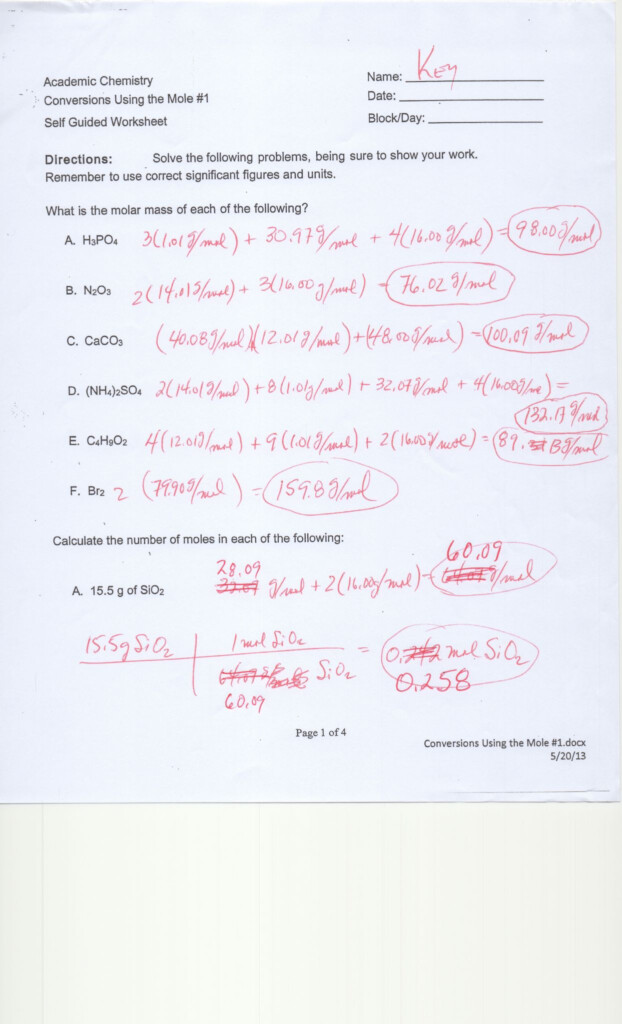 Academic Chemistry
Conversions Using the Mole #1
Self Guided Worksheet
Name: Key
Date:
Block/Day:
Directions: Solve the following problems, being sure to show your work.
Remember to use correct significant figures and units.
What is the molar mass of each of the following?
A. H₃PO₄ 3(1.01 g/mol) + 30.97 g/mol + 4(16.00 g/mol) = 98.00 g/mol
B. N₂O₃ 2(14.01 g/mol) + 3(16.00 g/mol) = 76.02 g/mol
C. CaCO₃ (40.08 g/mol)(12.01 g/mol) + (48.00 g/mol) = 100.09 g/mol
D. (NH₄)₂SO₄ 2(14.01 g/mol) + 8(1.01 g/mol) + 32.07 g/mol + 4(16.00 g/mol) =
132.17 g/mol
E. C₄H₉O₂ 4(12.01 g/mol) + 9(1.01 g/mol) + 2(16.00 g/mol) = 89.13 g/mol
F. Br₂ 2 (79.90 g/mol) = 159.8 g/mol
Calculate the number of moles in each of the following:
60.09
28.09
A. 15.5 g of SiO₂ g/mol + 2(16.00 g/mol) = g/mol
15.5g SiO₂ | 1 mol SiO₂ = 0.242 mol SiO₂
SiO₂ 0.258
60.09
Page 1 of 4
Conversions Using the Mole #1.docx
5/20/13